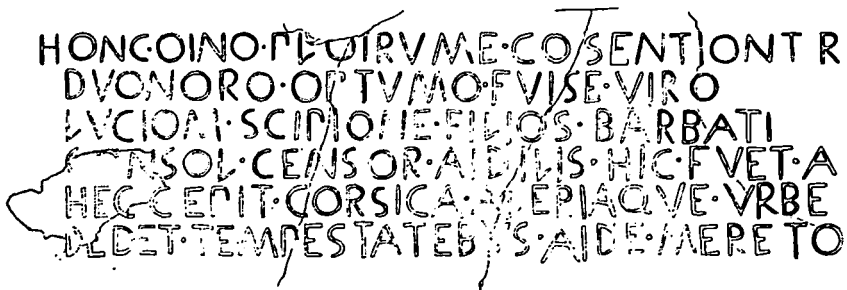 HONC·OINO·PLOIRVME·COSENTIONT R
DVONORO·OPTVMO·FVISE·VIRO
LVCIOM·SCIPIONE·FILIOS·BARBATI
CONSOL·CENSOR·AIDILIS·HIC·FVET·A
HEC·CEPIT·CORSICA·ALERIAQVE·VRBE
DEDET·TEMPESTATEBVS·AIDE·MERETO